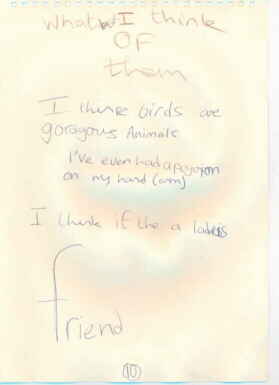 What I think
OF
them
I thinc birds are
goragous Animals
I've even had a
on my hand (arm)
I think if the a
friend
10